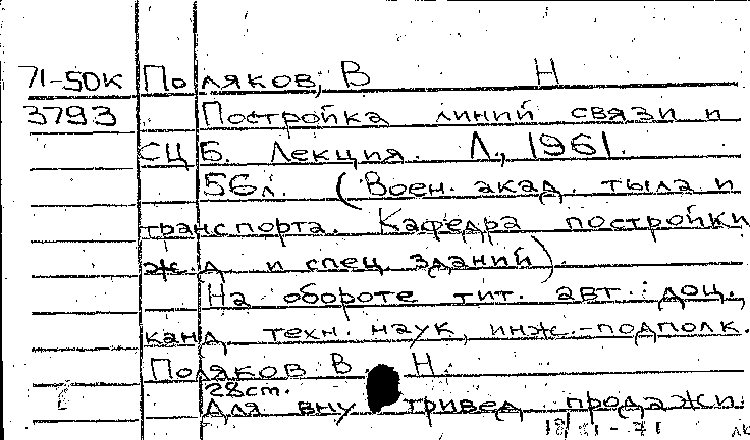 71-50к Поляков, В Н
3793 Постройка линий связи и
СЦБ. Лекция. Л., 1961.
56л. (Воен. акад. тыла и
транспорта. Кафедра постройки
ж.д и спец. зданий).
На обороте тит. авт.: доц.,
канд. техн. наук, инж.-подполк.
Поляков В. Н.
28ст.
Для внутривед продажи.